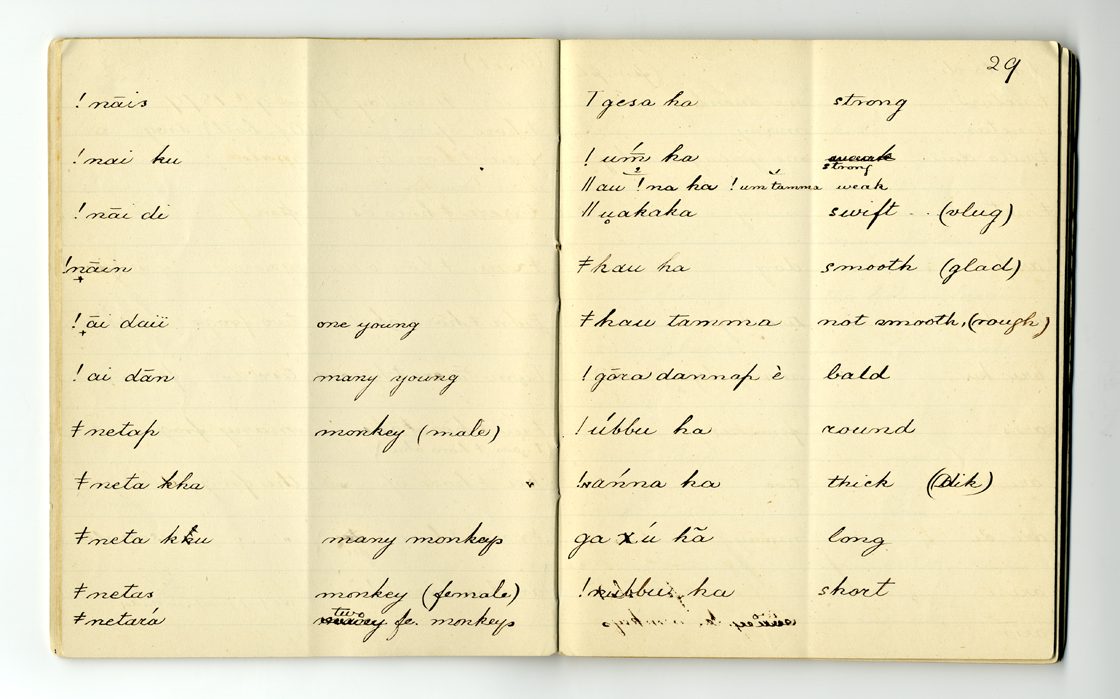 ! nāis
! nai ku
! nāi di
! nāin
! āi daii one young
! ai dān many young
ǂ netap monkey (male)
ǂ neta kha
ǂ neta khu many monkeys
ǂ netas monkey (female)
ǂ netará two fe. monkeys
29
gesa ha strong
! uḿ ha strong
ǁ au ! na ha ! um tamma weak
ǁ u̥akaka swift .. (vlug)
ǂ hau ha smooth (glad)
ǂ hau tamma not smooth, (rough)
! gōra dannap è bald
! úbbu ha round
! ánna ha thick (dik)
ga xú hā long
! úbbu ha short